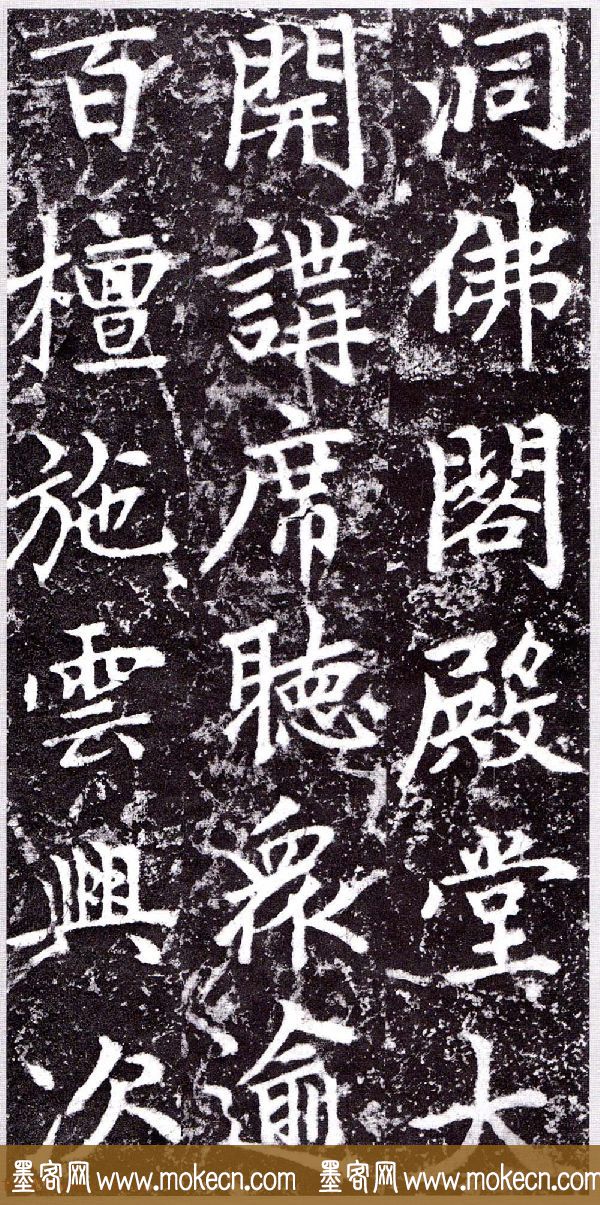 洞佛閣殿堂大
開講席聽眾逾
百檀施雲興次
墨客网 www.mokecn.com 墨客网 www.mokecn.com